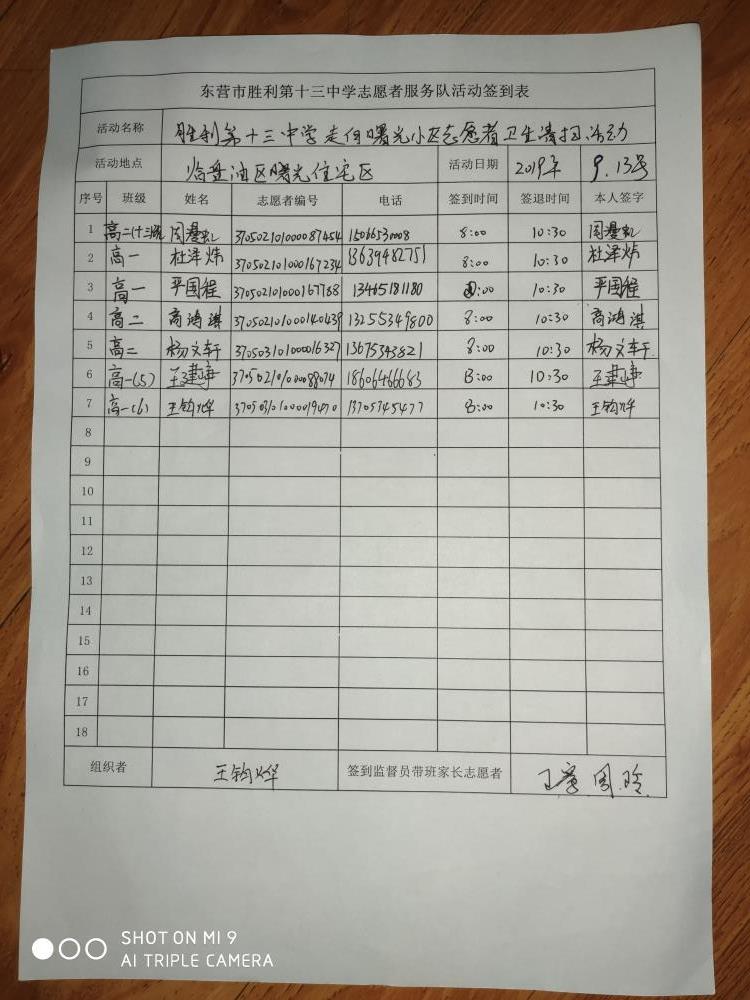 东营市胜利第十三中学志愿者服务队活动签到表
活动名称 胜利第十三中学走向曙光小区志愿者卫生清扫活动
活动地点 临盘油区曙光住宅区 活动日期 2019年 9.13号
序号 班级 姓名 志愿者编号 电话 签到时间 签退时间 本人签字
1 高二(十三)班 周漫虹 37050210100087454 15066530008 8:00 10:30 周漫虹
2 高一 杜泽炜 370502101000167234 13639482751 8:00 10:30 杜泽炜
3 高一 平国程 370502101000167768 13465181180 8:00 10:30 平国程
4 高二 商鸿淇 370502101000140439 13255349800 8:00 10:30 商鸿淇
5 高二 杨文轩 370503101000016327 13675343821 8:00 10:30 杨文轩
6 高一(5) 王建 37050210100088074 18606466683 8:00 10:30 王建
7 高一(6) 王钧烨 370503101000019070 13705345477 8:00 10:30 王钧烨
8
9
10
11
12
13
14
15
16
17
18
组织者 王钧烨 签到监督员带班家长志愿者 周玲
SHOT ON MI 9
AI TRIPLE CAMERA